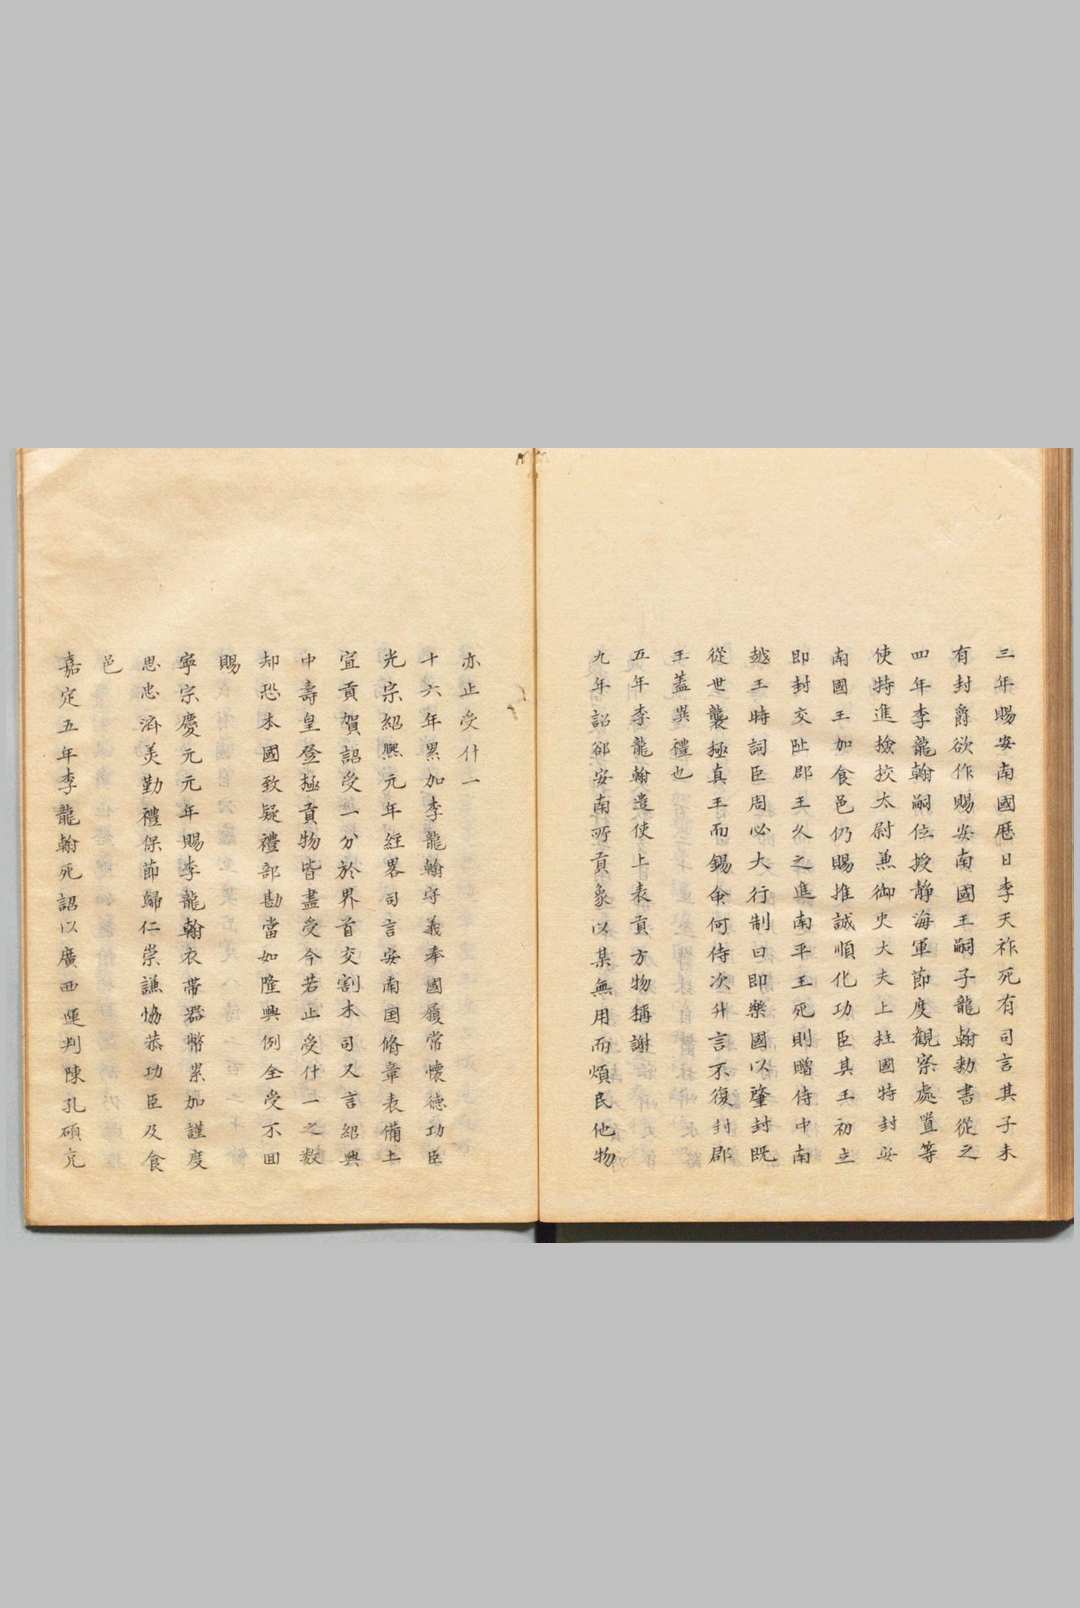 三年賜安南國曆日李天祚死有司言其子未
有封爵欲作賜安南國王嗣子龍翰勅書從之
四年李龍翰嗣位授静海軍節度觀察處置等
使特進撿挍太尉兼御史大夫上柱國特封安
南國王加食邑仍賜推誠順化功臣其王初立
即封交趾郡王久之進南平王死則贈侍中南
越王時詞臣周必大行制曰即樂國以肇封既
從世襲極真王而錫命何待次升言不復封郡
王蓋異禮也
五年李龍翰遣使上表貢方物稱謝
九年詔郤安南所貢象以其無用而煩民他物
亦止受什一
十六年累加李龍翰守義奉國履常懷德功臣
光宗紹熙元年經畧司言安南国脩章表備土
宜貢賀詔受一分於界首交割本司又言紹興
中壽皇登極貢物皆盡受今若止受什一之数
却恐本國致疑禮部勘當如隆興例全受不回
賜
寧宗慶元元年賜李龍翰衣帶器幣累加謹度
思忠濟美勤禮保節歸仁崇謙恊恭功臣及食
邑
嘉定五年李龍翰死詔以廣西運判陳孔碩充